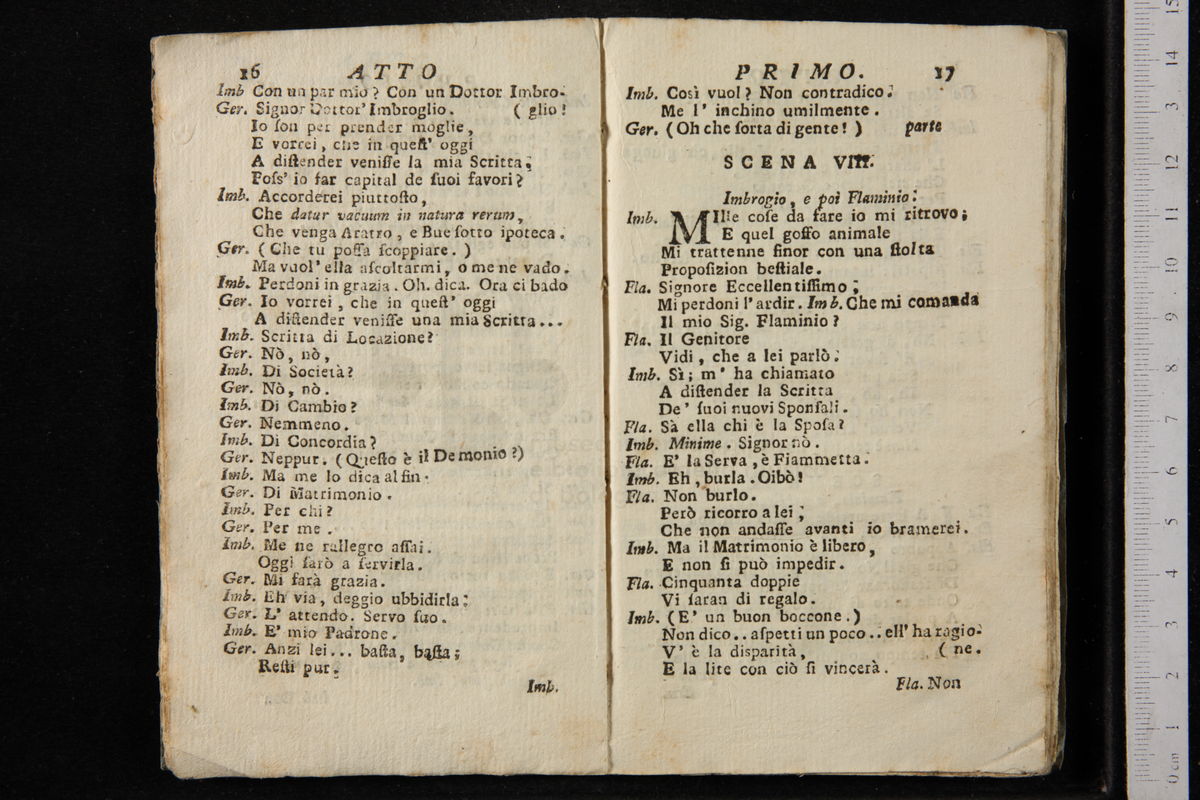 16 ATTO
Imb Con un par mio? Con un Dottor Imbro-
Ger. Signor Dottor' Imbroglio. ( glio!
Io ſon per prender moglie,
E vorrei, che in queſt' oggi
A diſtender veniſſe la mia Scritta;
Poſs' io far capital de ſuoi favori?
Imb. Accorderei piuttoſto,
Che datur vacuum in natura rerum,
Che venga Aratro, e Bue ſotto ipoteca.
Ger. (Che tu poſſa ſcoppiare. )
Ma vuol' ella aſcoltarmi, o me ne vado.
Imb. Perdoni in grazia. Oh. dica. Ora ci bado
Ger. Io vorrei, che in queſt' oggi
A diſtender veniſſe una mia Scritta...
Imb. Scritta di Locazione?
Ger. Nò, nò,
Imb. Di Società?
Ger. Nò, nò.
Imb. Di Cambio?
Ger. Nemmeno.
Imb. Di Concordia?
Ger. Neppur. (Queſto è il Demonio?)
Imb. Ma me lo dica al fin.
Ger. Di Matrimonio.
Imb. Per chi?
Ger. Per me.
Imb. Me ne rallegro aſſai.
Oggi ſarò a ſervirla.
Ger. Mi farà grazia.
Imb. Eh via, deggio ubbidirla:
Ger. L' attendo. Servo ſuo.
Imb. E' mio Padrone.
Ger. Anzi lei... baſta, baſta;
Reſti pur.
Imb.
PRIMO. 17
Imb. Così vuol? Non contradico.
Me l' inchino umilmente.
Ger. (Oh che ſorta di gente! ) parte
SCENA VIII.
Imbrogio, e poi Flaminio.
Imb. MIlle coſe da fare io mi ritrovo;
E quel goffo animale
Mi trattenne finor con una ſtolta
Propoſizion beſtiale.
Fla. Signore Eccellentiſſimo;
Mi perdoni l'ardir. Imb. Che mi comanda
Il mio Sig. Flaminio?
Fla. Il Genitore
Vidi, che a lei parlò.
Imb. Sì; m' ha chiamato
A diſtender la Scritta
De' ſuoi nuovi Sponſali.
Fla. Sà ella chi è la Spoſa?
Imb. Minime. Signor nò.
Fla. E' la Serva, è Fiammetta.
Imb. Eh, burla. Oibò!
Fla. Non burlo.
Però ricorro a lei;
Che non andaſſe avanti io bramerei.
Imb. Ma il Matrimonio è libero,
E non ſi può impedir.
Fla. Cinquanta doppie
Vi ſaran di regalo.
Imb. (E' un buon boccone.)
Non dico.. aſpetti un poco.. ell' ha ragio-
V' è la disparità, ( ne.
E la lite con ciò ſi vincerà.
Fla. Non
0 cm 1 2 3 4 5 6 7 8 9 10 11 12 13 14 15